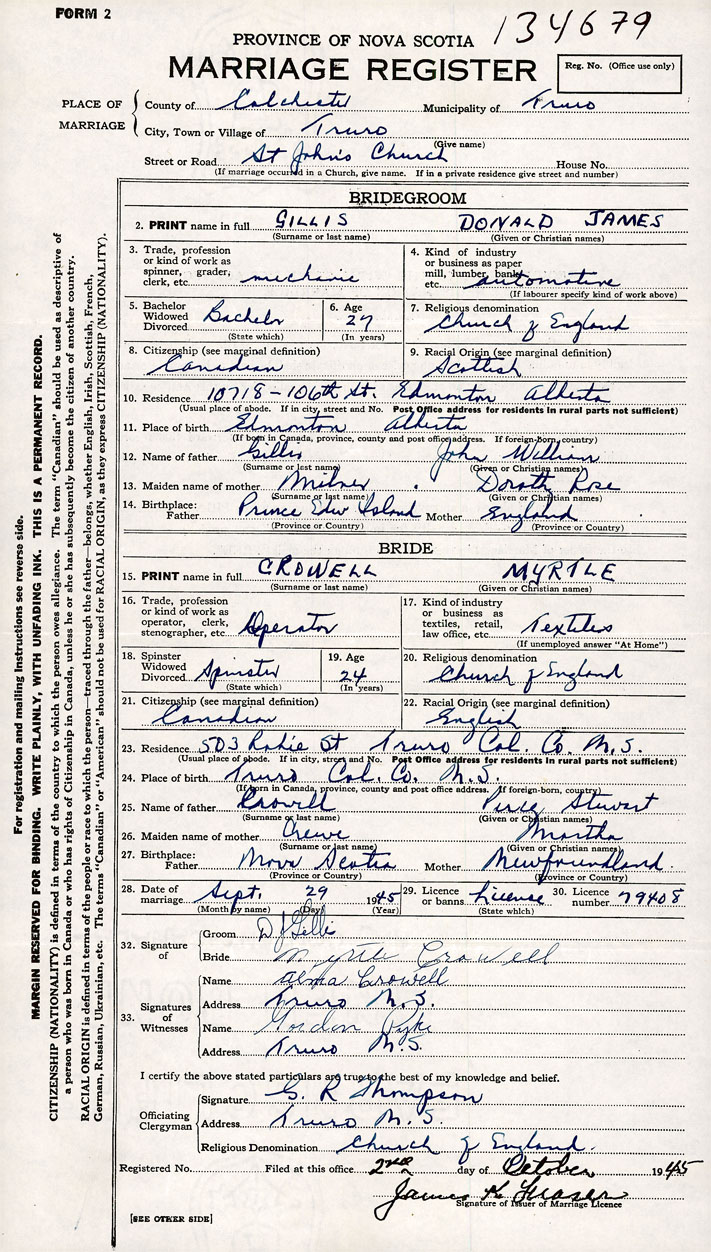 FORM 2
134679
PROVINCE OF NOVA SCOTIA
MARRIAGE REGISTER
Reg. No. (Office use only)
PLACE OF MARRIAGE
County of Colchester Municipality of Truro
City, Town or Village of Truro
(Give name)
Street or Road St John's Church House No.
(If marriage occurred in a Church, give name. If in a private residence give street and number)
BRIDEGROOM
2. PRINT name in full GILLIS DONALD JAMES
(Surname or last name) (Given or Christian names)
3. Trade, profession or kind of work as spinner, grader, clerk, etc. mechanic
4. Kind of industry or business as paper mill, lumber, bank, etc. automotive
(If labourer specify kind of work above)
5. Bachelor Widowed Divorced Bachelor
(State which)
6. Age 27
(In years)
7. Religious denomination Church of England
8. Citizenship (see marginal definition) Canadian
9. Racial Origin (see marginal definition) Scottish
10. Residence 10718-106th St. Edmonton Alberta
(Usual place of abode. If in city, street and No. Post Office address for residents in rural parts not sufficient)
11. Place of birth Edmonton Alberta
(If born in Canada, province, county and post office address. If foreign-born, country)
12. Name of father Gillis John William
(Surname or last name) (Given or Christian names)
13. Maiden name of mother Milner Doroth Rose
(Surname or last name) (Given or Christian names)
14. Birthplace: Father Prince Edw Island Mother England
(Province or Country) (Province or Country)
BRIDE
15. PRINT name in full CROWELL MYRTLE
(Surname or last name) (Given or Christian names)
16. Trade, profession or kind of work as operator, clerk, stenographer, etc. Operator
17. Kind of industry or business as textiles, retail, law office, etc. Textiles
(If unemployed answer "At Home")
18. Spinster Widowed Divorced Spinster
(State which)
19. Age 24
(In years)
20. Religious denomination Church of England
21. Citizenship (see marginal definition) Canadian
22. Racial Origin (see marginal definition) English
23. Residence 503 St Truro Col. Co. N.S.
(Usual place of abode. If in city, street and No. Post Office address for residents in rural parts not sufficient)
24. Place of birth Truro Col. Co. N.S.
(If born in Canada, province, county and post office address. If foreign-born, country)
25. Name of father Crowell Stewart
(Surname or last name) (Given or Christian names)
26. Maiden name of mother Martha
(Surname or last name) (Given or Christian names)
27. Birthplace: Father Nova Scotia Mother Newfoundland
(Province or Country) (Province or Country)
28. Date of marriage Sept. 29 1945
(Month by name) (Day) (Year)
29. Licence or banns License
(State which)
30. Licence number 79408
32. Signature of
Groom D J Gillis
Bride Myrtle Crowell
33. Signatures of Witnesses
Name Alma Crowell
Address Truro N.S.
Name Gordon Pyke
Address Truro N.S.
I certify the above stated particulars are true to the best of my knowledge and belief.
Officiating Clergyman
Signature G. R Thompson
Address Truro N.S.
Religious Denomination Church of England.
Registered No. Filed at this office 2nd day of October 1945
James K Fraser
Signature of Issuer of Marriage Licence
[SEE OTHER SIDE]
For registration and mailing instructions see reverse side.
MARGIN RESERVED FOR BINDING. WRITE PLAINLY, WITH UNFADING INK. THIS IS A PERMANENT RECORD.
CITIZENSHIP (NATIONALITY) is defined in terms of the country to which the person owes allegiance. The term "Canadian" should be used as descriptive of
a person who was born in Canada or who has rights of Citizenship in Canada, unless he or she has subsequently become the citizen of another country.
RACIAL ORIGIN is defined in terms of the people or race to which the person—traced through the father—belongs, whether English, Irish, Scottish, French,
German, Russian, Ukrainian, etc. The terms "Canadian" or "American" should not be used for RACIAL ORIGIN, as they express CITIZENSHIP (NATIONALITY).